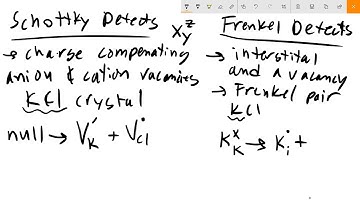 Schottky Defects
→ charge compensating
anion & cation vacancies
KCl crystal
null → V_K' + V_Cl^•
X_Y^Z
Frenkel Defects
→ interstital
and a vacancy
→ Frenkel pair
KCl
K_K^x → K_i^• +